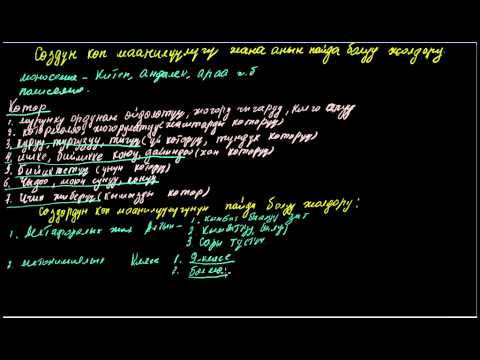 Сөздүн көп маанилүүлүгү жана анын пайда болуу жолдору.
моносемия - Китеп, андалек, араа ж.б
полисемия.
Көтөр
1. мурунку ордунан ойдолотуу, жогору чыгаруу, колго алуу
2. көтөрмөлөө, жогорулатуу (жаштарды көтөрүү)
3. куруу, тургузуу, тигүү (үй көтөрүү, түндүк көтөрүү)
4. ишке, бийликке коюу, дайындоо (хан көтөрүү)
5. Бийиктетүү (үнүн көтөрүү)
6. Чыдоо, моюн сунуу, көнүү
7. Ичип жиберүү (кымызды көтөр)
Сөздөрдүн көп маанилүүлүгүнүн пайда болуу жолдору:
1. Метафоралык жол Алтын - 1. кымбат баалуу зат
2. Кымбаттуу,
3. Сары түстүү
2. метонимиялык Класс 1. 9-класс
2. бөлмө.